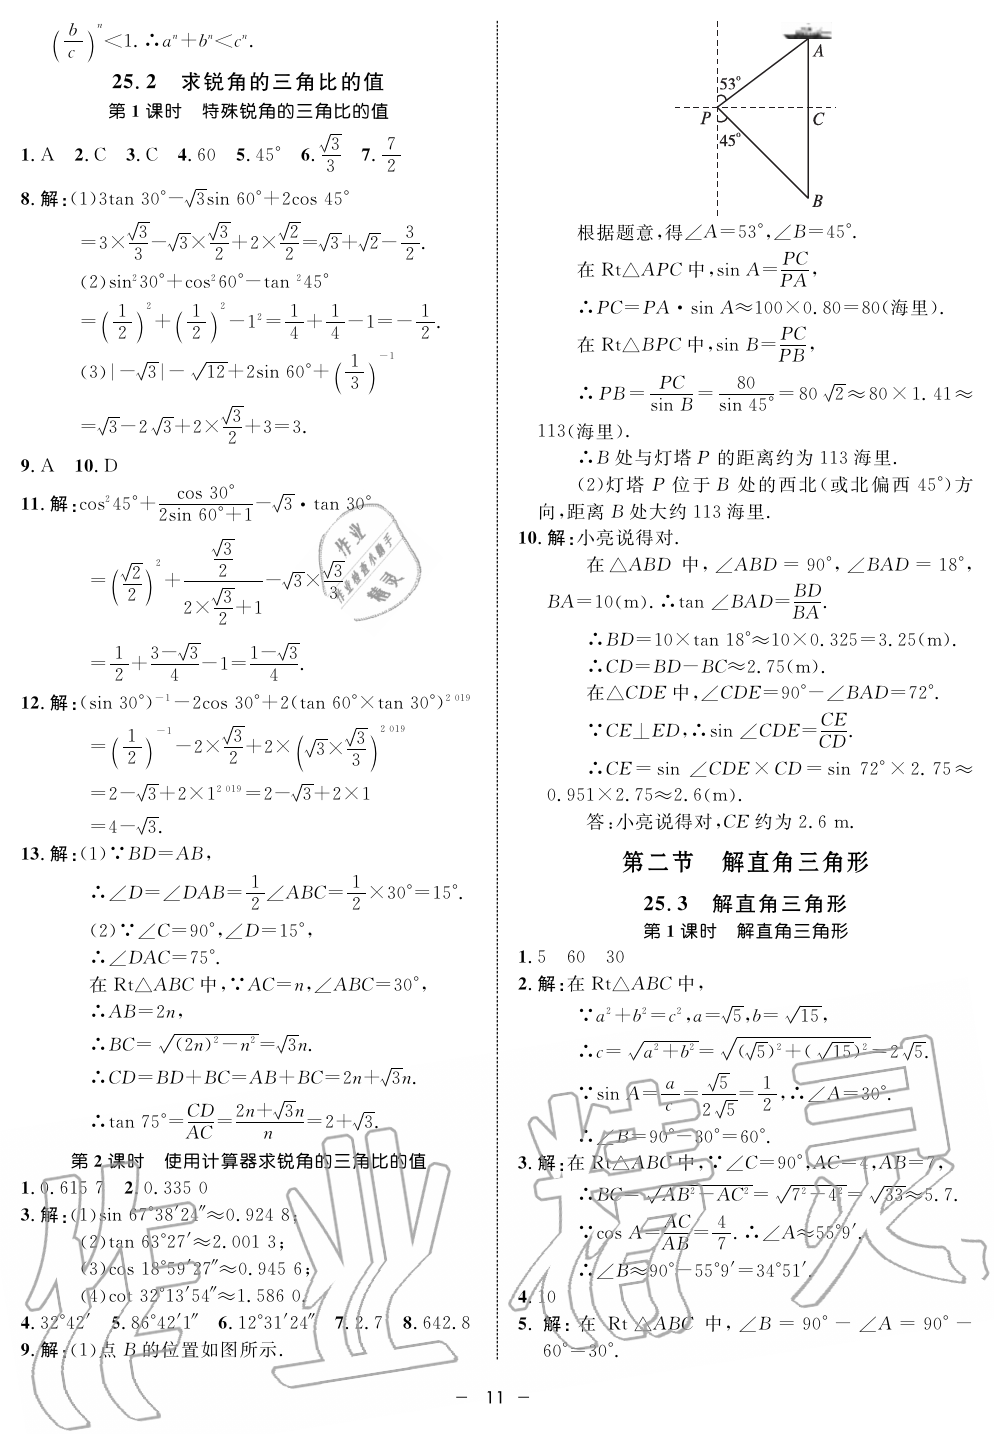 (b/c)ⁿ<1.∴aⁿ+bⁿ<cⁿ.
25.2 求锐角的三角比的值
第1课时 特殊锐角的三角比的值
1.A 2.C 3.C 4.60 5.45° 6.√3/3 7.7/2
8.解:(1)3tan 30°-√3sin 60°+2cos 45°
=3×√3/3-√3×√3/2+2×√2/2=√3+√2-3/2.
(2)sin²30°+cos²60°-tan ²45°
=(1/2)²+(1/2)²-1²=1/4+1/4-1=-1/2.
(3)|-√3|-√12+2sin 60°+(1/3)⁻¹
=√3-2√3+2×√3/2+3=3.
9.A 10.D
11.解:cos²45°+cos 30°/(2sin 60°+1)-√3·tan 30°
=(√2/2)²+(√3/2)/(2×√3/2+1)-√3×√3/3
=1/2+(3-√3)/4-1=(1-√3)/4.
12.解:(sin 30°)⁻¹-2cos 30°+2(tan 60°×tan 30°)²⁰¹⁹
=(1/2)⁻¹-2×√3/2+2×(√3×√3/3)²⁰¹⁹
=2-√3+2×1²⁰¹⁹=2-√3+2×1
=4-√3.
13.解:(1)∵BD=AB,
∴∠D=∠DAB=1/2∠ABC=1/2×30°=15°.
(2)∵∠C=90°,∠D=15°,
∴∠DAC=75°.
在Rt△ABC中,∵AC=n,∠ABC=30°,
∴AB=2n,
∴BC=√((2n)²-n²)=√3n.
∴CD=BD+BC=AB+BC=2n+√3n.
∴tan 75°=CD/AC=(2n+√3n)/n=2+√3.
第2课时 使用计算器求锐角的三角比的值
1.0.615 7 2.0.335 0
3.解:(1)sin 67°38′24″≈0.924 8;
(2)tan 63°27′≈2.001 3;
(3)cos 18°59′27″≈0.945 6;
(4)cot 32°13′54″≈1.586 0.
4.32°42′ 5.86°42′1″ 6.12°31′24″ 7.2.7 8.642.8
9.解:(1)点B的位置如图所示.
A
53°
P
C
45°
B
根据题意,得∠A=53°,∠B=45°.
在Rt△APC中,sin A=PC/PA,
∴PC=PA·sin A≈100×0.80=80(海里).
在Rt△BPC中,sin B=PC/PB,
∴PB=PC/sin B=80/sin 45°=80√2≈80×1.41≈
113(海里).
∴B处与灯塔P的距离约为113海里.
(2)灯塔P位于B处的西北(或北偏西45°)方
向,距离B处大约113海里.
10.解:小亮说得对.
在△ABD中,∠ABD=90°,∠BAD=18°,
BA=10(m).∴tan ∠BAD=BD/BA.
∴BD=10×tan 18°≈10×0.325=3.25(m).
∴CD=BD-BC≈2.75(m).
在△CDE中,∠CDE=90°-∠BAD=72°.
∵CE⊥ED,∴sin ∠CDE=CE/CD.
∴CE=sin ∠CDE×CD=sin 72°×2.75≈
0.951×2.75≈2.6(m).
答:小亮说得对,CE约为2.6 m.
第二节 解直角三角形
25.3 解直角三角形
第1课时 解直角三角形
1.5 60 30
2.解:在Rt△ABC中,
∵a²+b²=c²,a=√5,b=√15,
∴c=√(a²+b²)=√((√5)²+(√15)²)=2√5.
∵sin A=a/c=√5/2√5=1/2,∴∠A=30°.
∴∠B=90°-30°=60°.
3.解:在Rt△ABC中,∵∠C=90°,AC=4,AB=7,
∴BC=√(AB²-AC²)=√(7²-4²)=√33≈5.7.
∵cos A=AC/AB=4/7.∴∠A≈55°9′.
∴∠B≈90°-55°9′=34°51′.
4.10
5.解:在Rt△ABC中,∠B=90°-∠A=90°-
60°=30°.
- 11 -
作业精灵
作业
作业检查小助手
精灵